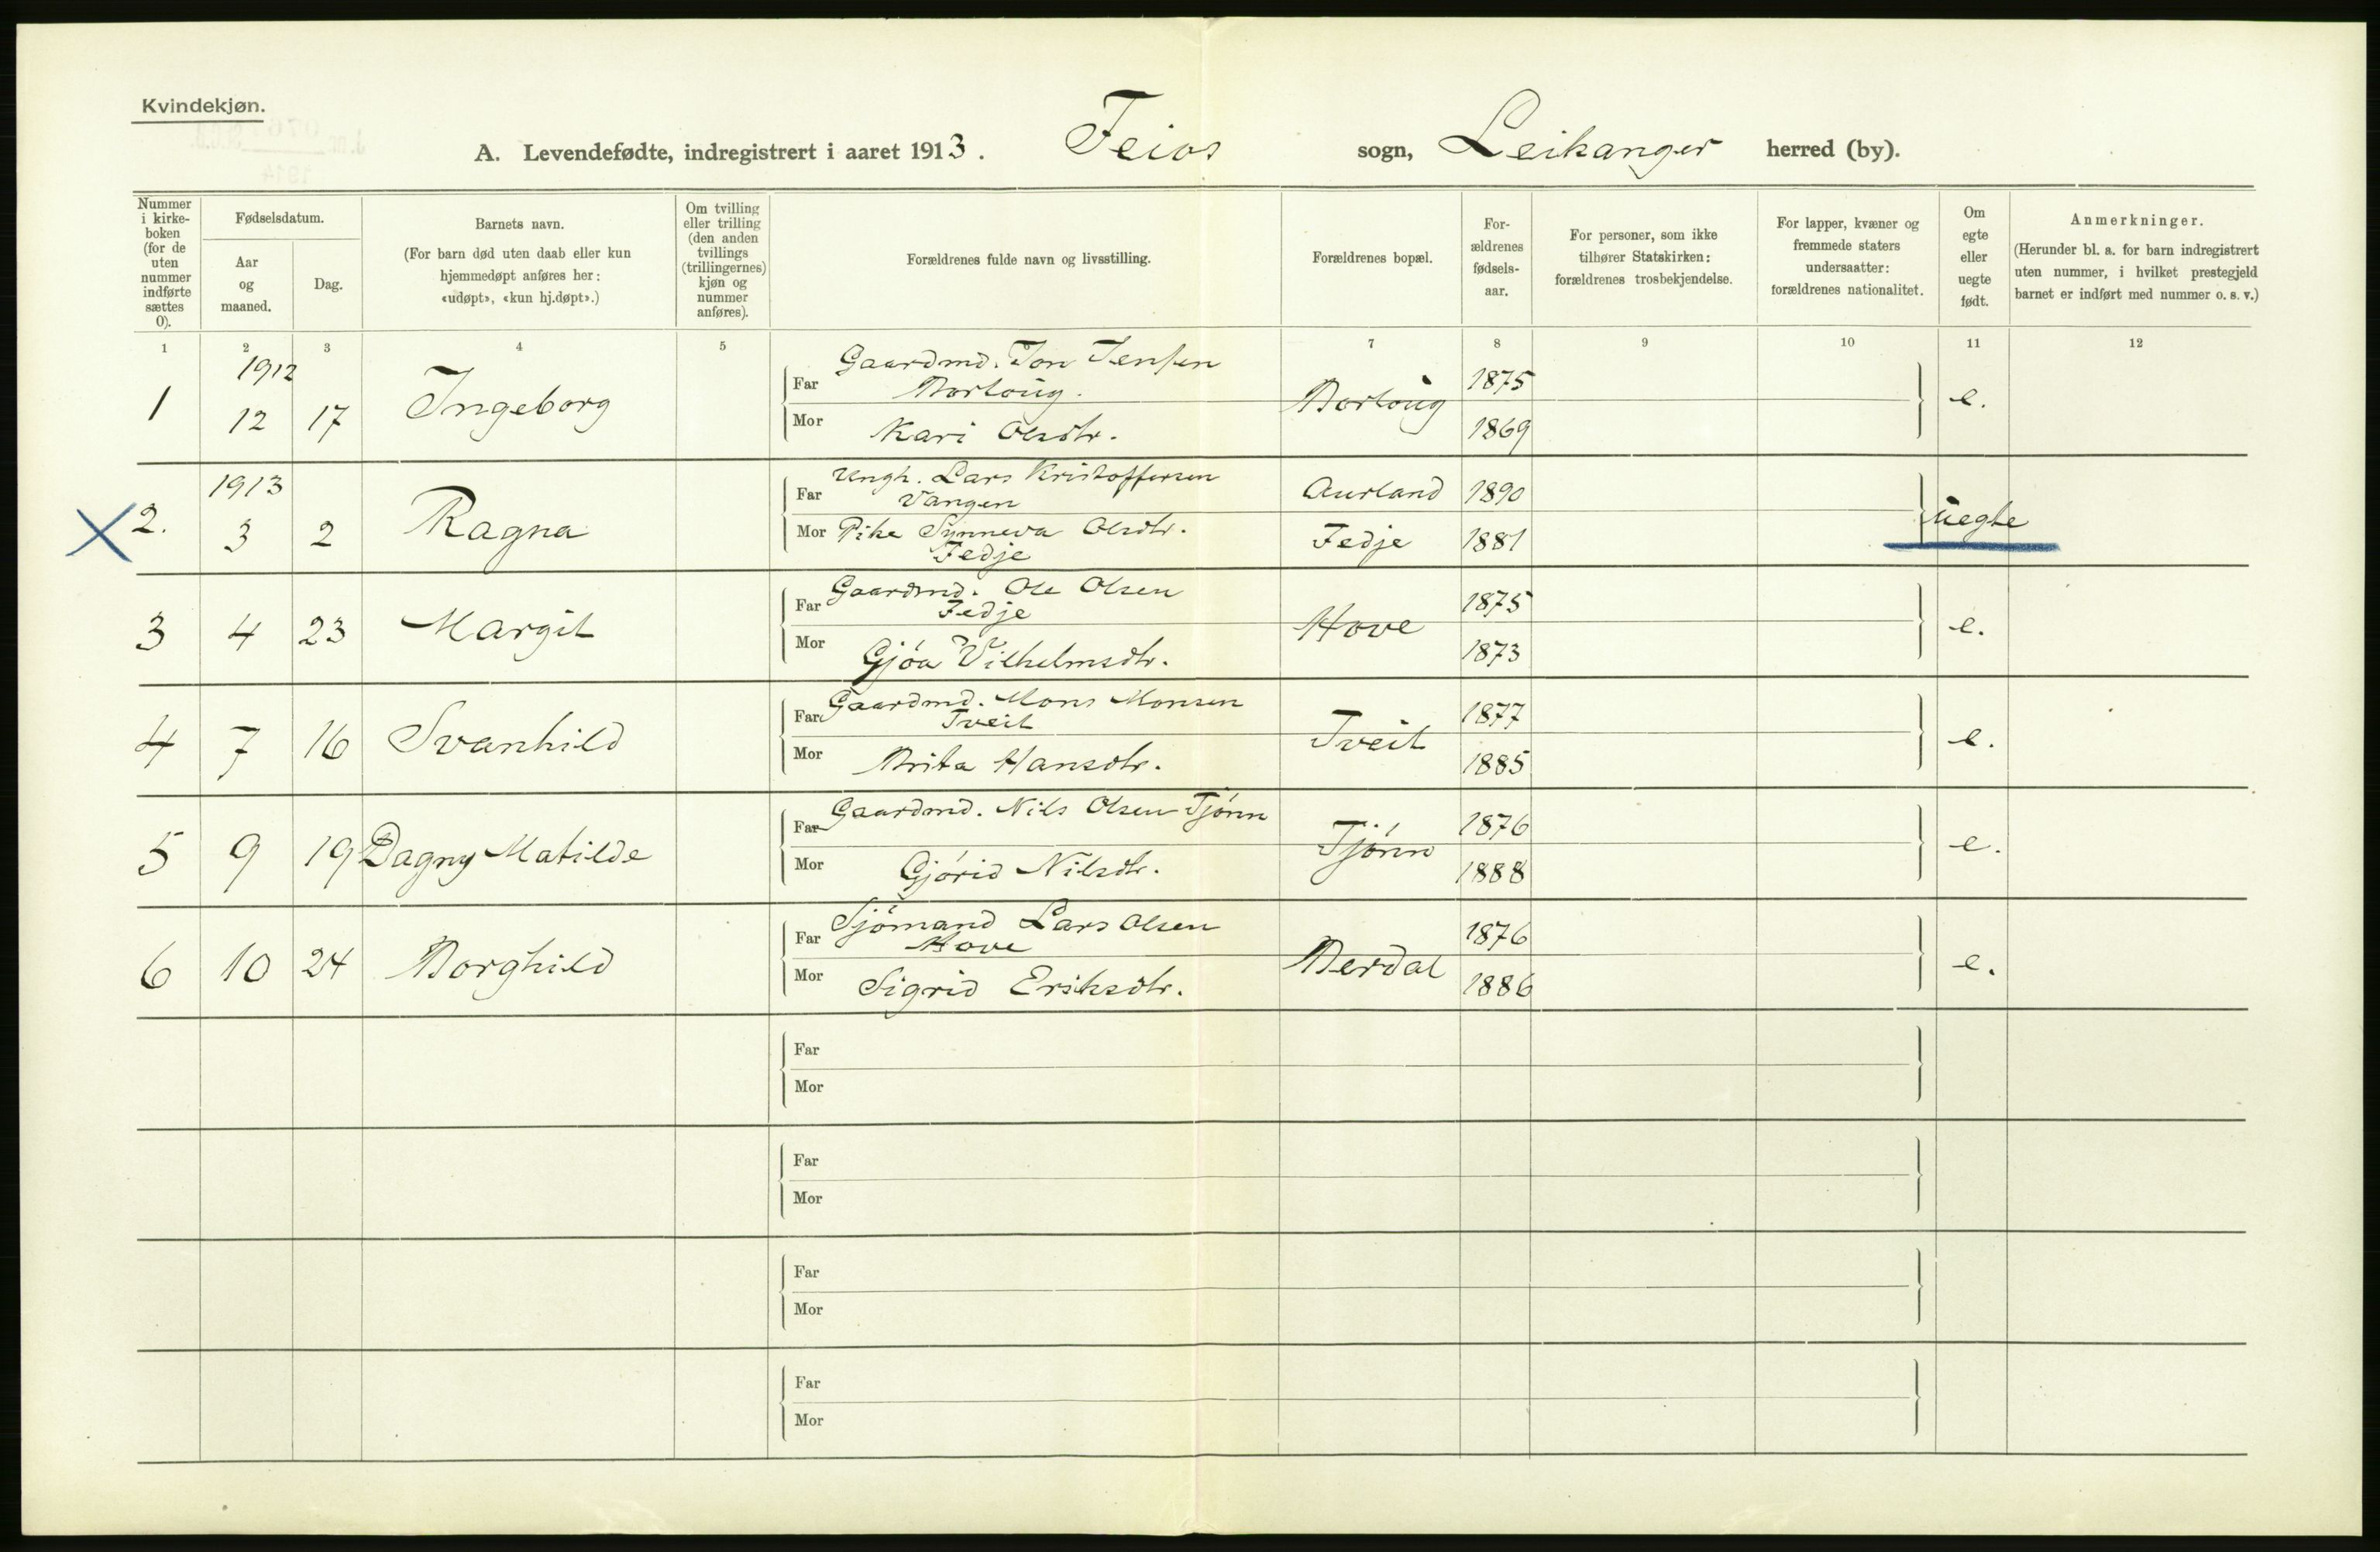 Kvindekjøn.
A. Levendefødte, indregistrert i aaret 1913. Feios sogn, Leikanger herred (by).
Nummer i kirke-boken (for de uten nummer indførte sættes 0).
Fødselsdatum.
Aar og maaned.
Dag.
Barnets navn.
(For barn død uten daab eller kun hjemmedøpt anføres her:
«udøpt», «kun hj.døpt».)
Om tvilling eller trilling (den anden tvillings (trillingernes) kjøn og nummer anføres).
Forældrenes fulde navn og livsstilling.
Forældrenes bopæl.
For-ældrenes fødsels-aar.
For personer, som ikke tilhører Statskirken: forældrenes trosbekjendelse.
For lapper, kvæner og fremmede staters undersaatter: forældrenes nationalitet.
Om egte eller uegte født.
Anmerkninger.
(Herunder bl. a. for barn indregistrert uten nummer, i hvilket prestegjeld barnet er indført med nummer o. s. v.)
1 2 3 4 5 6 7 8 9 10 11 12
1 1912 12 17 Ingeborg
Far Gaardmd. Jon Jensen
Borlaug. 1875
Mor Kari Olsdtr. Borlaug 1869 e.
2. 1913 3 2 Ragna
Far Ungk. Lars Kristoffersen
Vangen Aurland 1890
Mor Pike Synneva Olsdtr.
Fedje Fedje 1881 uegte
3 4 23 Margit
Far Gaardmd. Ole Olsen
Fedje 1875
Mor Gjóa Vilhelmsdtr. Hove 1873 e.
4 7 16 Svanhild
Far Gaardmd. Mons Monsen
Tveit 1877
Mor Brita Hansdtr. Tveit 1885 e.
5 9 19 Dagny Matilde
Far Gaardmd. Nils Olsen Tjónn 1876
Mor Gjórid Nilsdtr. Tjónn 1888 e.
6 10 24 Borghild
Far Sjómand Lars Olsen
Hove 1876
Mor Sigrid Eriksdtr. Berdal 1886 e.
Far
Mor
Far
Mor
Far
Mor
Far
Mor